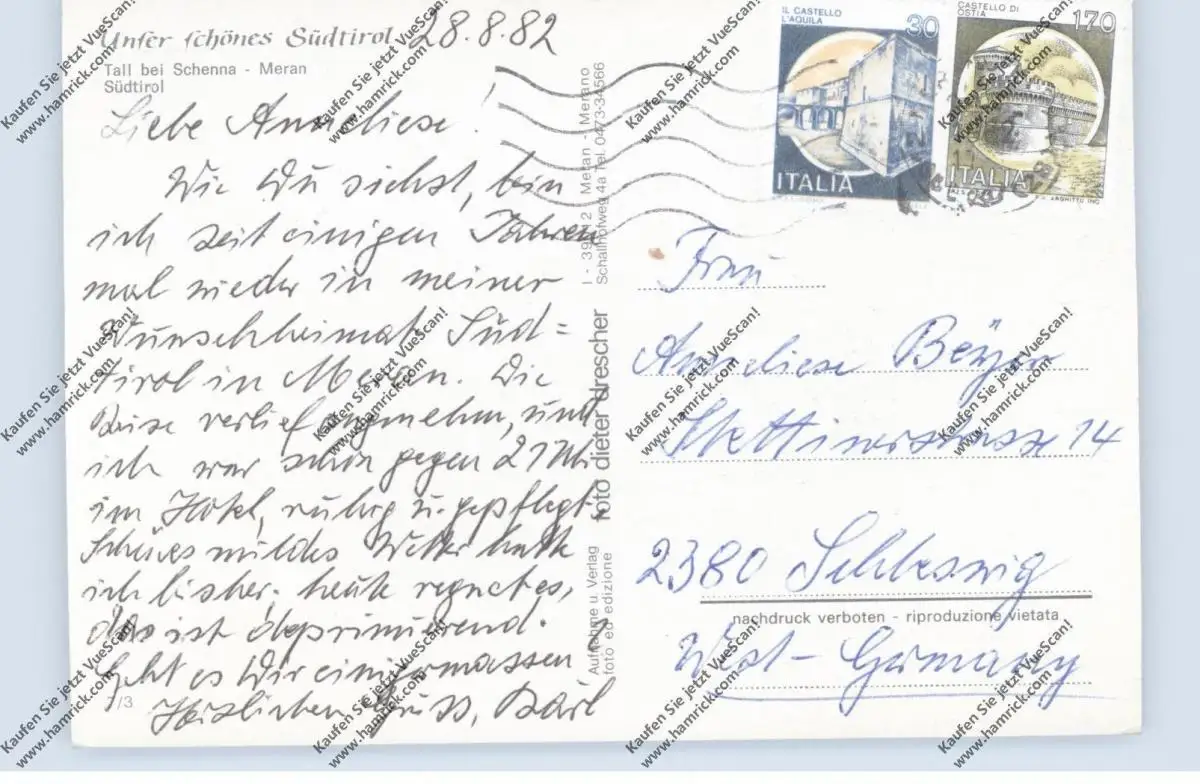 Unser schönes Südtirol
28.8.82
Tall bei Schenna - Meran
Südtirol
Liebe Anneliese!
Wie Du siehst, bin
ich seit einigen Jahren
mal wieder in meiner
Wunschheimat Süd=
tirol in Meran. Die
Reise verlief angenehm, und
ich war schon gegen 21 Uhr
im Hotel, ruhig u. gepflegt.
Schönes mildes Wetter hatte
ich bisher, heute regnet es,
das ist deprimierend.
Geht es Dir einigermassen?
Herzlichen Gruss,
/3
I - 39012 Meran - Merano
Schallhofweg 4a Tel. 0473-34566
foto dieter drescher
Aufnahme u. Verlag
foto ed edizione
IL CASTELLO
L'AQUILA
30
ITALIA
CASTELLO DI
OSTIA
170
ITALIA
Frau
Anneliese
Stettinerstrasse 14
2380 Schleswig
nachdruck verboten - riproduzione vietata
West-Germany
Kaufen Sie jetzt VueScan!
www.hamrick.com